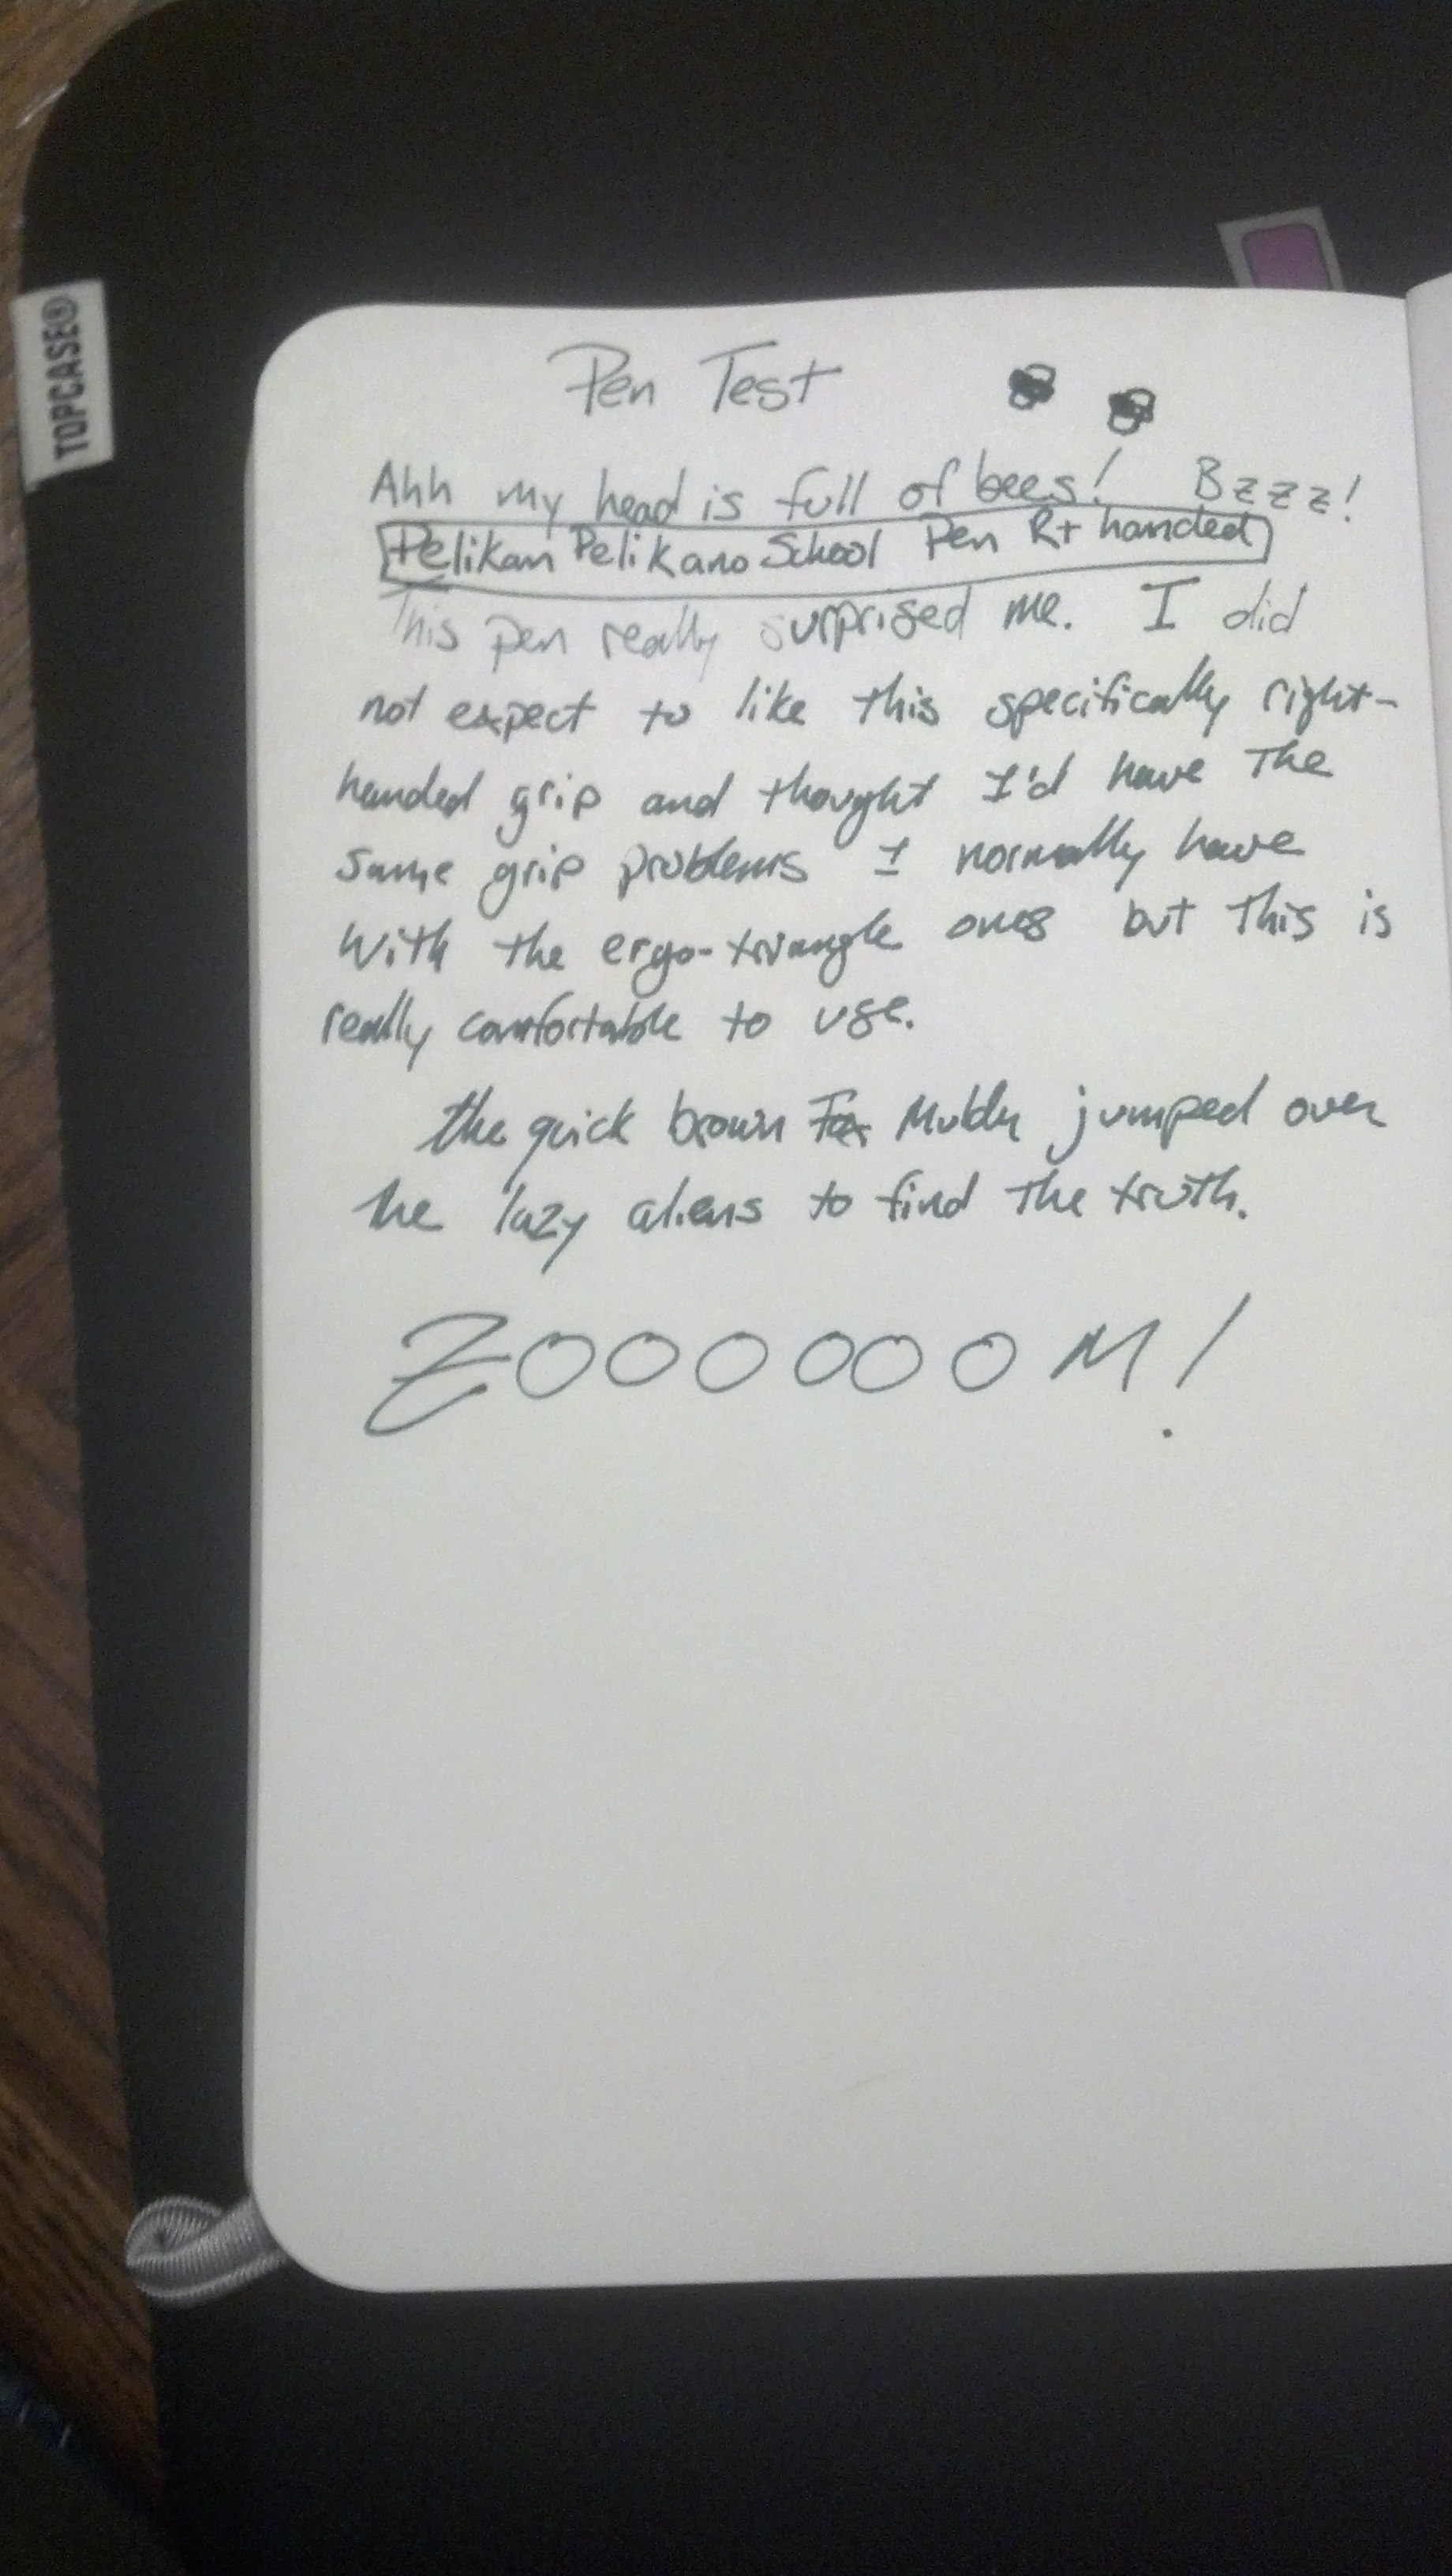 TOPCASE®
Pen Test
Ahh my head is full of bees! Bzzz!
Pelikan Pelikano School Pen Rt handed
This pen really surprised me. I did
not expect to like this specifically right-
handed grip and thought I'd have the
same grip problems I normally have
with the ergo-triangle ones but this is
really comfortable to use.
the quick brown Fox jumped over
the lazy aliens to find the truth.
ZOOOOOOM!